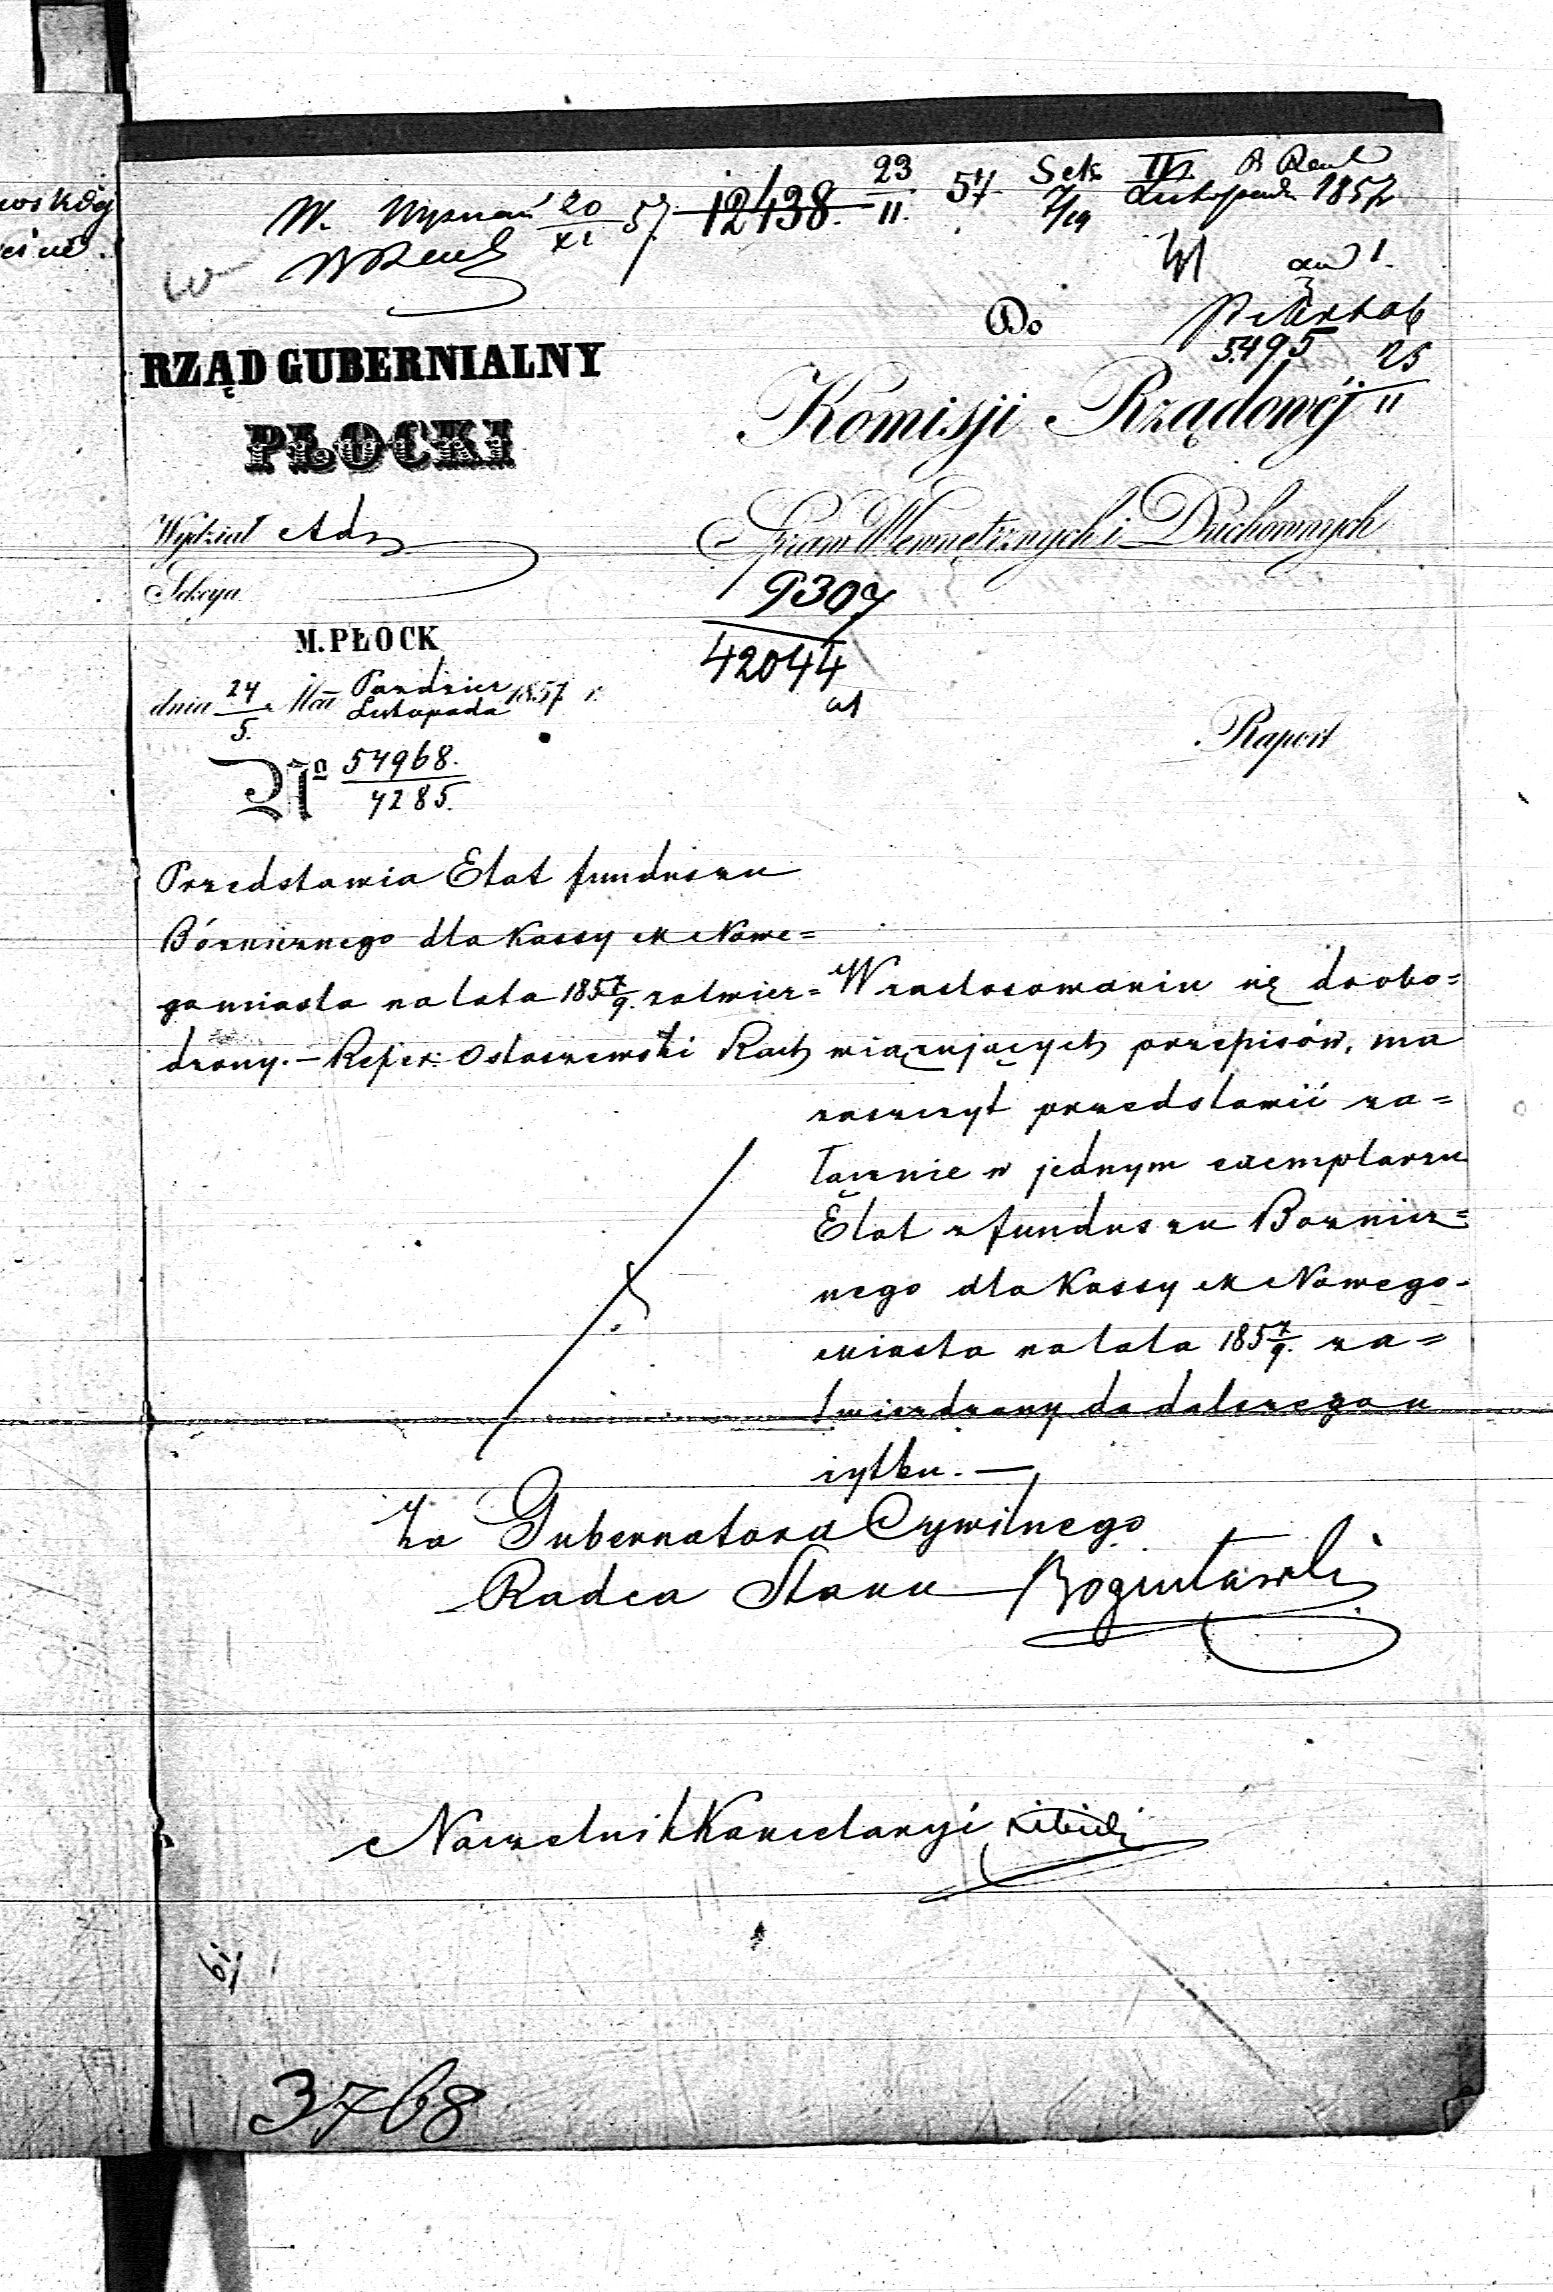 W. Wyznań 20/XI 57. 12438. 23/11. 57 Sek III
7/19 Listopada 1857
Do
5495 25/11
RZĄD GUBERNIALNY
PŁOCKI
Komisji Rządowéj
Spraw Wewnętrznych i Duchownych
Wydział Adm
Sekcya
9307
42044
M. PŁOCK
dnia 24/5. Mca Paździer/Listopada 1857 r.
Raport
No 54968./4285.
Przedstawia Etat funduszu
Bóżnicznego dla Kassy M Nowe=
gomiasta na lata 1857/9. zatwier=
dzony. – Refer: Ostaszewski Rach
W zastosowaniu się do obo=
wiązujących przepisów, ma
zaszczyt przedstawić za=
łącznie w jednym exemplarzu
Etat z funduszu Bożnicz=
nego dla Kassy M Nowego-
miasta na lata 1857/9. za=
twierdzony do dalszego u
żytku. —
Za Gubernatora Cywilnego
Radca Stanu Bogusławski
Naczelnik Kancelaryi
61
3768